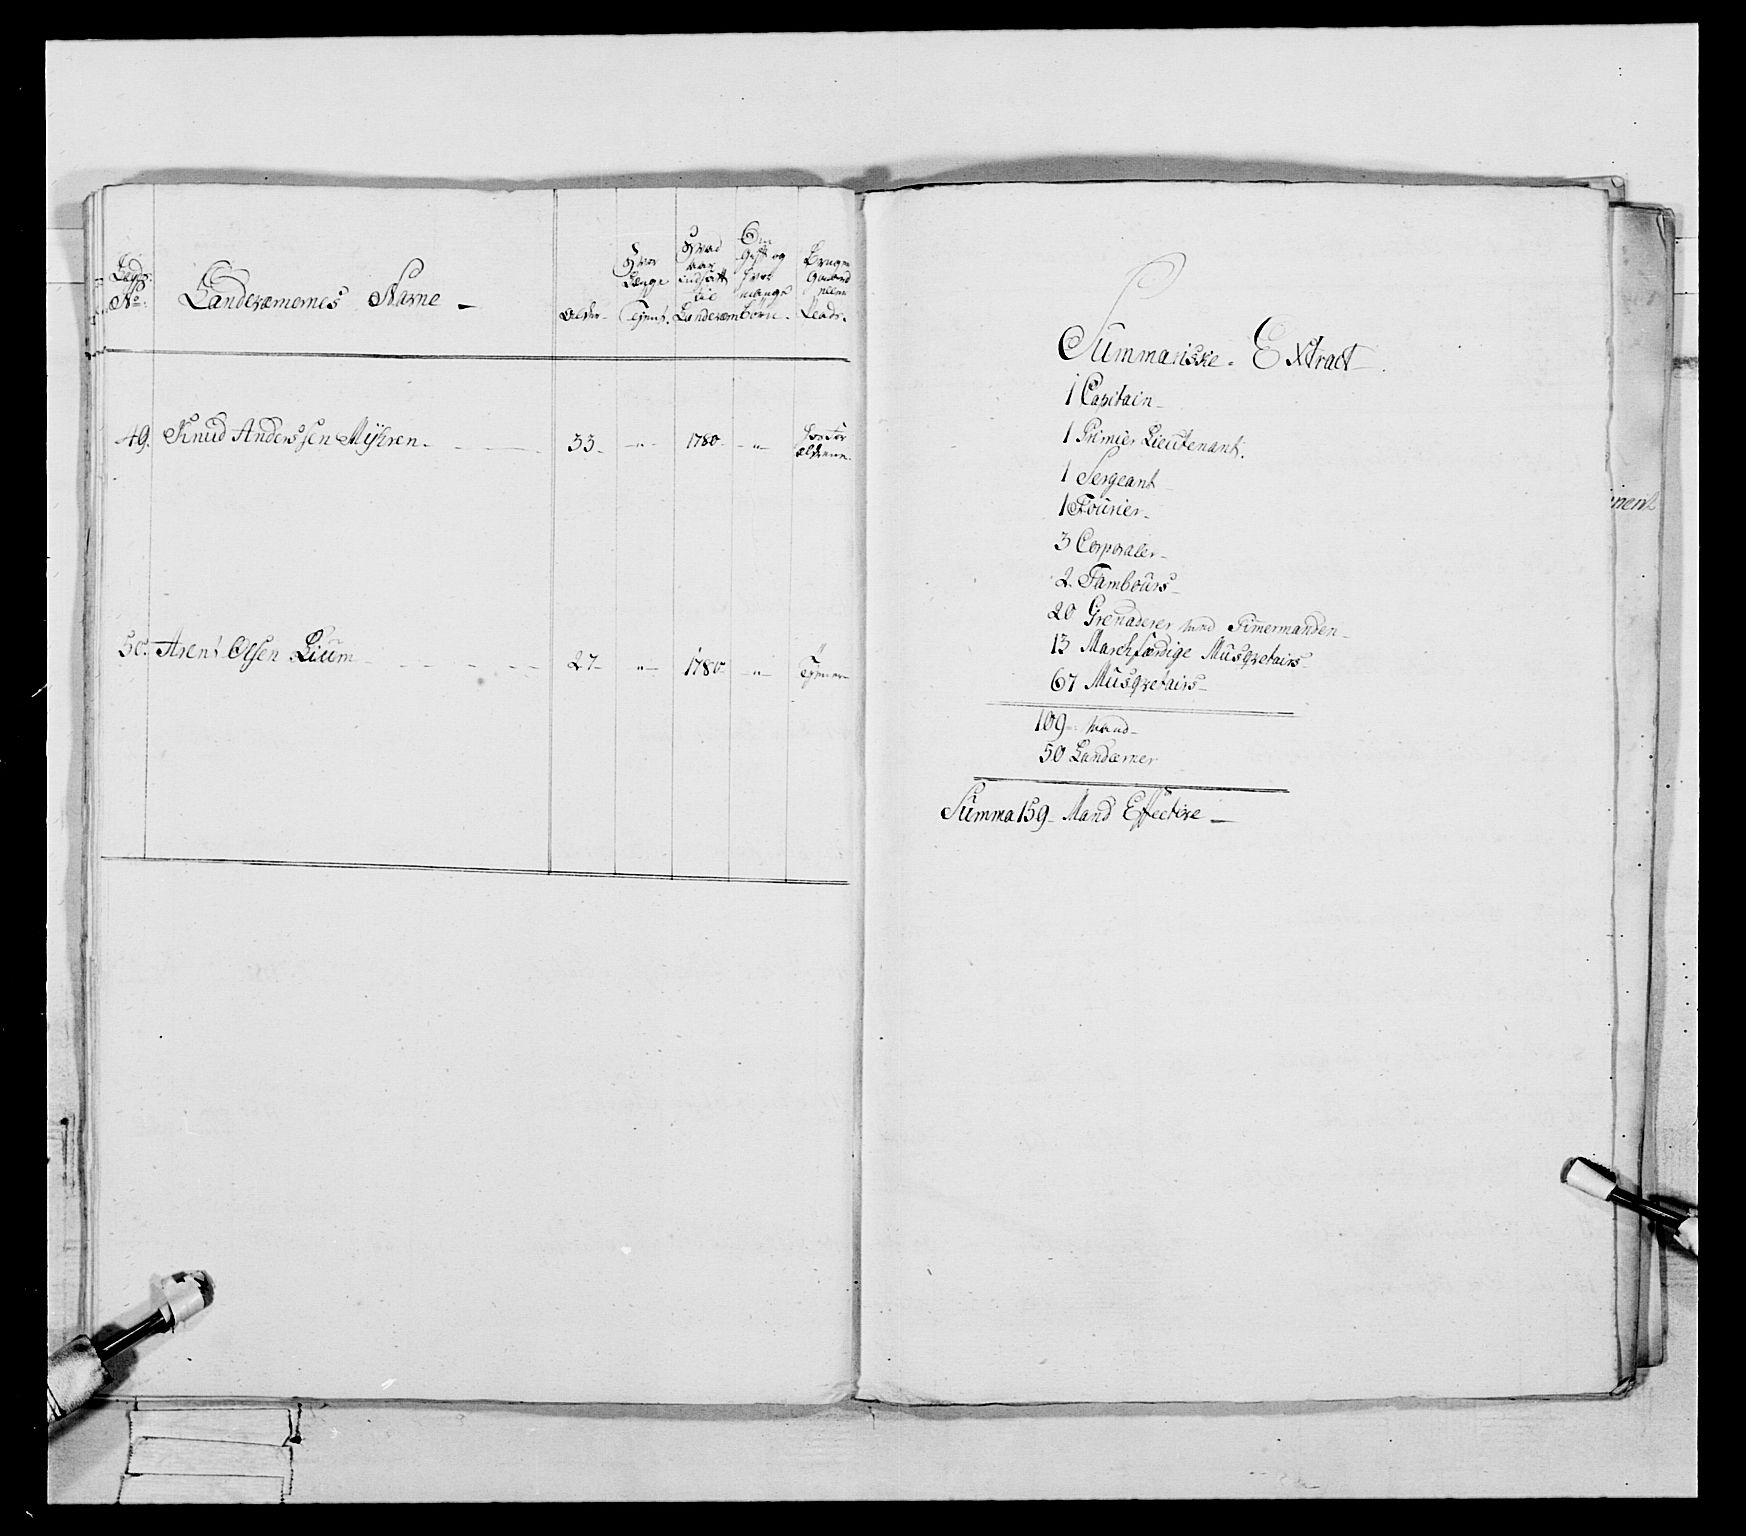 Lægs No. Landeværnernes Navne - Alder - Hvor Længe Tjent. Hvad aar indsatt til Landeværn Om Gift og hvor mange børn. Bruger Gaard eller Pladz.
49. Knud Anderssen Myhren - 33 - " - 1780 - " - hos For ældrene
50. Arent Olsen Lium - 27 - " - 1780 - " - Tjener
Summariske Extract
1 Capitain
1 Primier Lieutenant.
1 Sergeant
1 Fourier
3 Corporaler
2 Tambours
20 Grenaderer und Timermanden
13 Marchfærdige Musqvetairs
67 Musqvetairs
109 mand
50 Landværner
Summa 159 Mand Effective